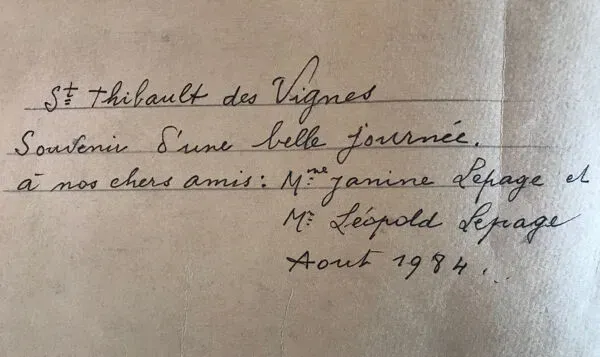 St Thibault des Vignes
Souvenir d'une belle journée.
à nos chers amis : Mme Janine Lepage et
Mr Léopold Lepage
Aout 1984...